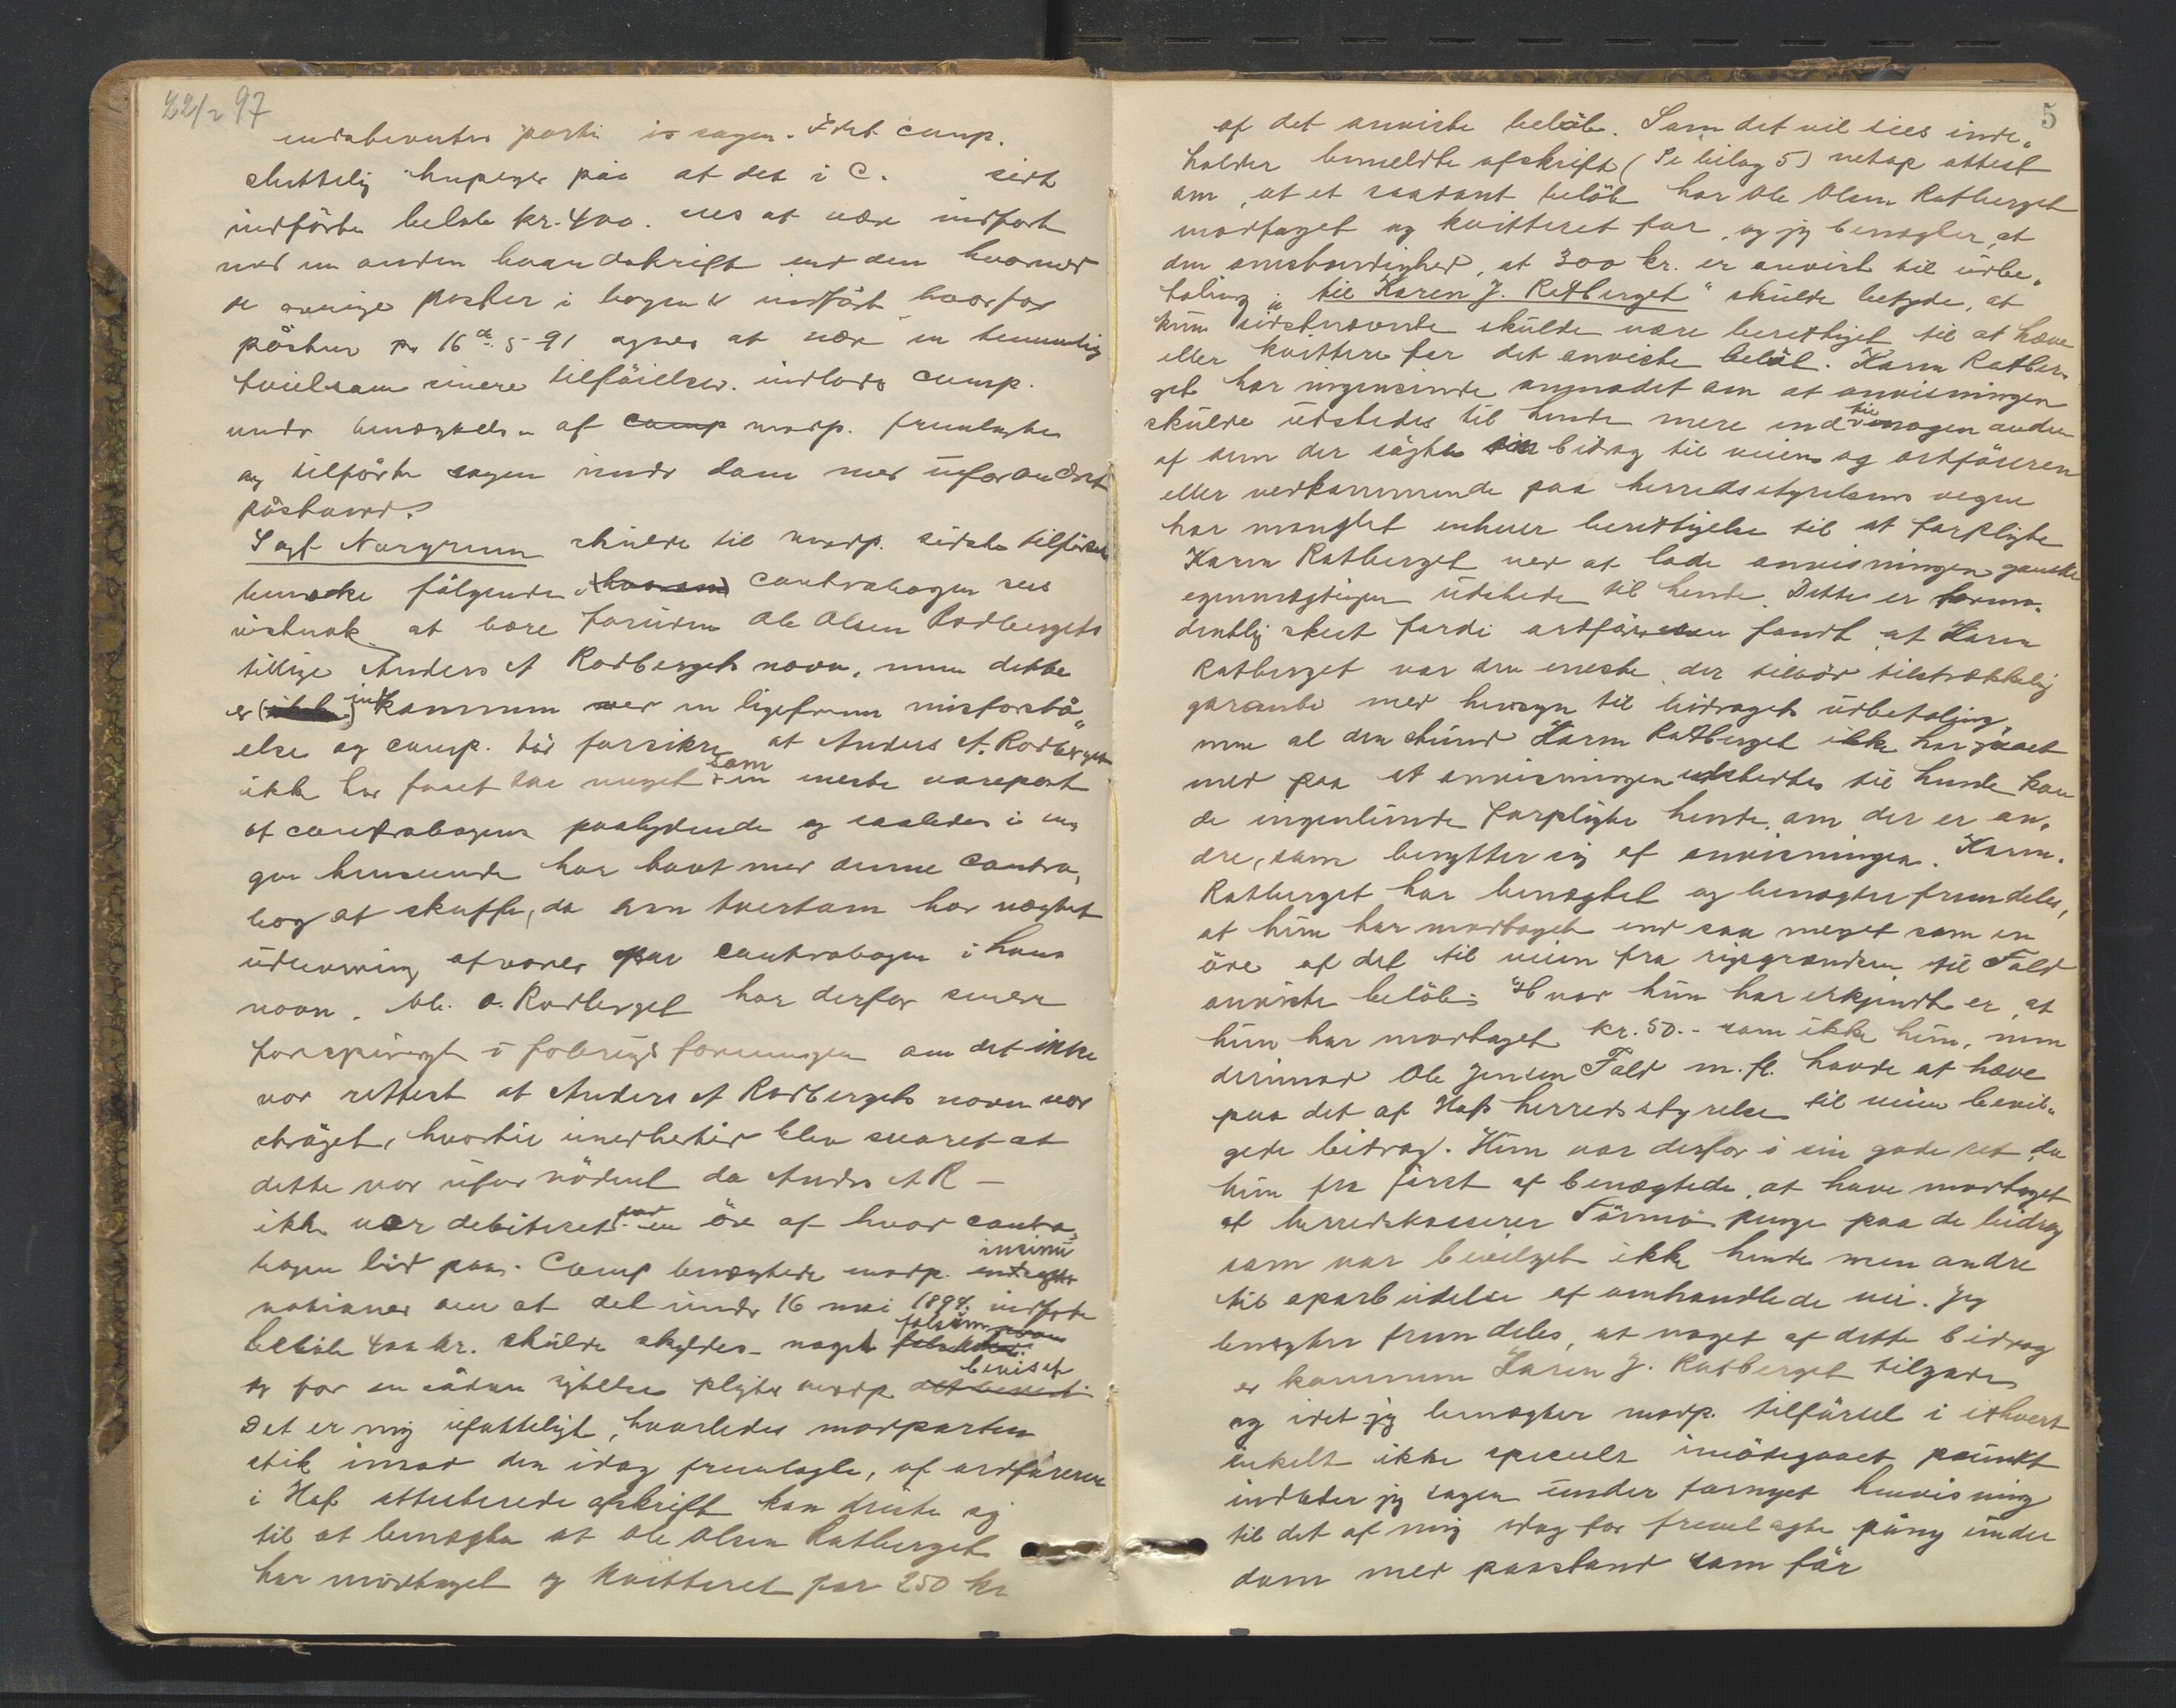 22/2 97
parti i sagen. Idet comp.
sluttelig paa at det i C. sidst
indførte beløb kr. 400. sees at være indført
med en anden haandskrift end den hvormed
de øvrige poster i bogen er indført hvorfor
posten pr 16de 5-91 agnes at være en temmelig
tvielsom senere tilføielse. indlods comp.
under benægtelse af comp modp. fremlagte
og tilførte sagen under dom med uforandret
påstand.
Sagf. Norgrenn skulde til modp. sidste tilførsel
bemærke følgende: contrabogen sees
vistnok at bære foruden Ole Olsen Rodbergets
tillige Anders A Rodbergets navn, men dette
er indkommen ved en ligefrem misforstå„
else og comp. tør forsikre at Anders A. Rodberget
ikke har faaet saa meget som en eneste varepost
af contrabogens paalydende og saaledes i in„
gen henseende har havt med denne contra„
bog at skaffe, da han tvertom har nægtet
udlevering af varer paa contrabogen i hans
navn. Ole O. Rodberget har derfor senere
forespurgt i foreningen om det ikke
var rettest at Anders A Rodbergets navn var
strøget, hvortil imidlertid blev svaret at
dette var ufornødent da Anders A R –
ikke var debiteret for en øre af hvad contra„
bogen lød paa. Comp benægtede modp. insinu
ationer om at det under 16 mai 1891. indførte
beløb 400 kr. skulde skyldes noget falsum
og for en sådan sigtelse pligter modp beviset
Det er mig ufatteligt, hvorledes modparten
stik imod den idag fremlagte, af ordføreren
i Hof attesterede afskrift kan driste sig
til at benægte at Ole Olsen Ratberget
har modtaget og kvitteret for 250 kr
5
af det anviste beløb. Som det vil sees inde„
holder bemeldte afskrift (Se bilag 5) netop attest
om, at et saadant beløb har Ole Olsen Ratberget
modtaget og kvitteret for, og jeg benægter, at
den omstændighed, at 300 kr. er anvist til udbe„
taling „til Karen J. Ratberget" skulde betyde, at
kun sidstnævnte skulde være berettiget til at hæve
eller kvittere for det anviste beløb. Karen Ratber„
get har ingensinde anmodet om at anvisningen
skulde udstedes til hende mere end til nogen anden
af dem der søgte om bidrag til veien og ordføreren
eller vedkommende paa herredsstyrelsens vegne
har manglet enhver berettigelse til at forpligte
Karen Ratberget ved at lade anvisningen ganske
egenmægtigen udstede til hende. Dette er formo„
dentlig skeet fordi ordføreren fandt, at Karen
Ratberget var den eneste, der tilbød tilstrækkelig
garanti med hensyn til bidragets udbetaling,
men al den stund Karen Ratberget ikke har gaaet
med paa at anvisningen udstedtes til hende kan
de ingenlunde forpligte hende, om der er an„
dre, som benytter sig af anvisningen. Karen
Ratberget har benægtet og benægter fremdeles,
at hun har modtaget end saa meget som en
øre af det til veien fra rigsgrændsen til Fald
anviste beløb: Hvad hun har erkjendt er, at
hun har modtaget kr. 50.– som ikke hun, men
derimod Ole Jensen Fald m.fl. havde at hæve
paa det af Hofs herredsstyrelse til veien bevil„
gede bidrag. Hun var derfor i sin gode ret, da
hun fra først af benægtede, at have modtaget
af herredskasserer Tørmo penge paa de bidrag
som var bevilget ikke hende men andre
til oparbeidelse af omhandlede vei. Jeg
benægter fremdeles, at noget af dette bidrag
er kommen Karen J. Ratberget tilgode
og idet jeg benægter modp. tilførsel i ethvert
enkelt ikke specielt imødegaaet punkt
indlader jeg sagen under fornyet henvisning
til det af mig idag før fremlagte påny under
dom med paastand som før